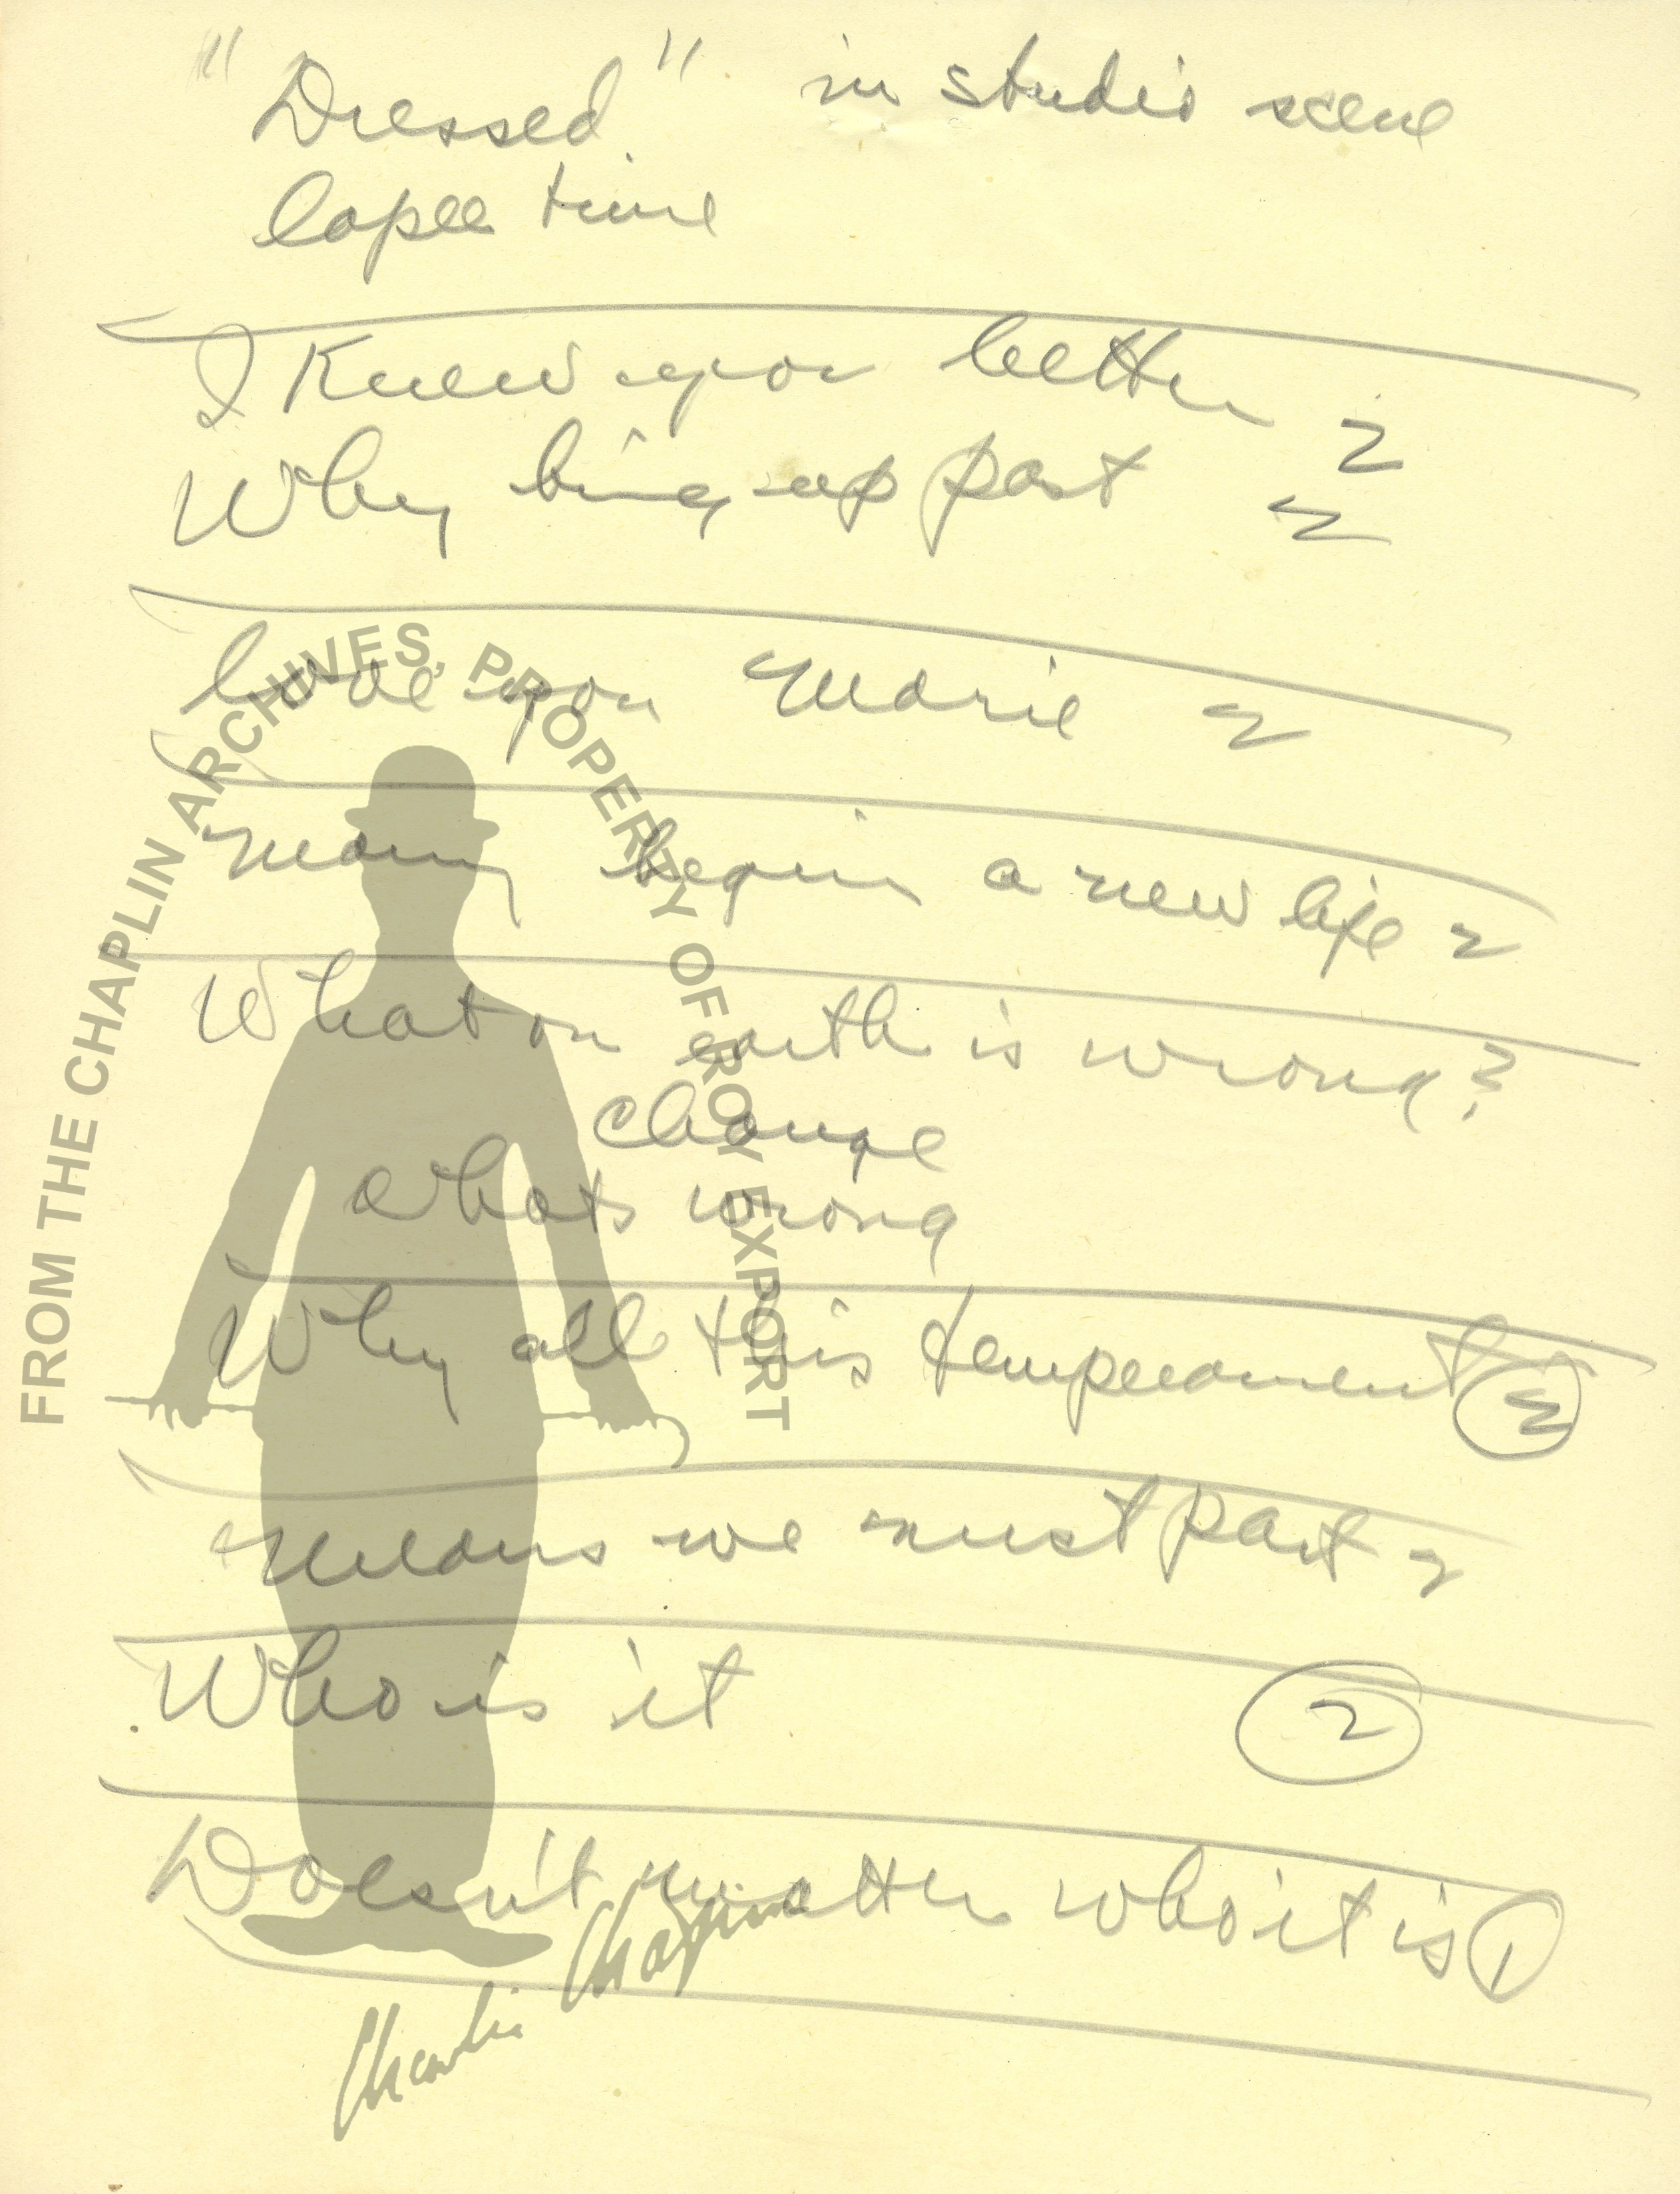 "Dressed" in studio scene
lapse time
I Knew you better 2
Why bring up past 2
love you Marie 2
Marry begin a new life 2
What on earth is wrong?
change
Whats wrong
Why all this temperament 2
Means we must part 2
Who is it 2
Doesn't matter who it is 1
FROM THE CHAPLIN ARCHIVES, PROPERTY OF ROY EXPORT
Charlie Chaplin